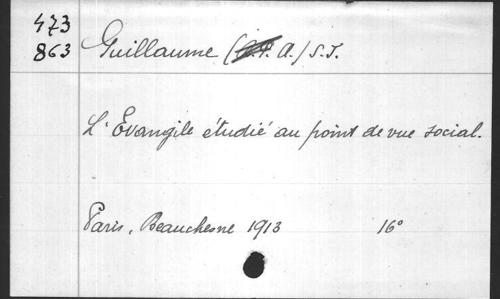 473
863
Guillaume (A.) S.J.
L'Evangile étudié au point de vue social.
Paris, Beauchesne 1913 16°